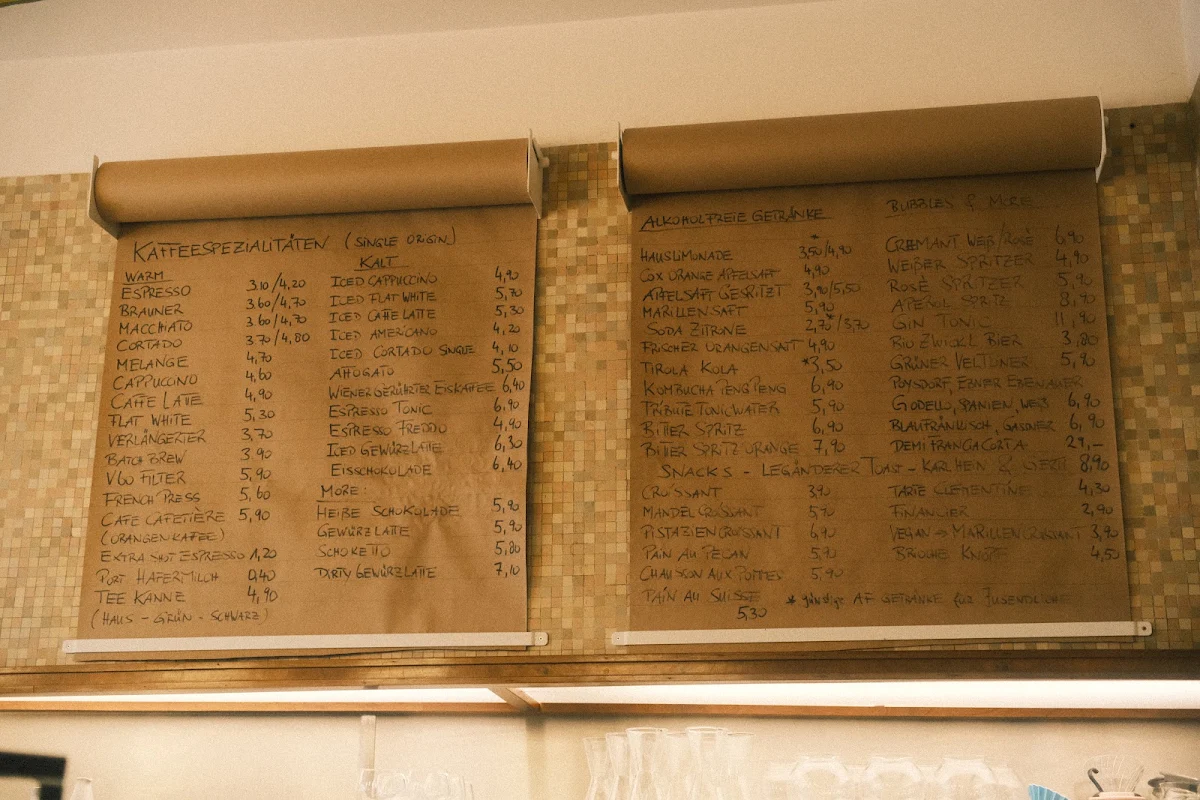 KAFFEESPEZIALITÄTEN (SINGLE ORIGIN)
WARM
ESPRESSO 3,10/4,20
BRAUNER 3,60/4,70
MACCHIATO 3,60/4,70
CORTADO 3,70/4,80
MELANGE 4,70
CAPPUCCINO 4,60
CAFFE LATTE 4,90
FLAT WHITE 5,30
VERLÄNGERTER 3,70
BATCH BREW 3,90
V60 FILTER 5,90
FRENCH PRESS 5,60
CAFE CAFETIÈRE 5,90
(ORANGENKAFFEE)
EXTRA SHOT ESPRESSO 1,20
PORT HAFERMILCH 0,40
TEE KANNE 4,90
(HAUS - GRÜN - SCHWARZ)
KALT
ICED CAPPUCCINO 4,90
ICED FLAT WHITE 5,70
ICED CAFFE LATTE 5,30
ICED AMERICANO 4,20
ICED CORTADO SINGLE 4,10
AFFOGATO 5,50
WIENER GERÜHRTER EISKAFFEE 6,40
ESPRESSO TONIC 6,90
ESPRESSO FREDDO 4,90
ICED GEWÜRZLATTE 6,30
EISSCHOKOLADE 6,40
MORE:
HEIßE SCHOKOLADE 5,90
GEWÜRZLATTE 5,90
SCHOKETTO 5,80
DIRTY GEWÜRZLATTE 7,10
ALKOHOLFREIE GETRÄNKE
HAUSLIMONADE 3,50/4,90 *
COX ORANGE APFELSAFT 4,90
APFELSAFT GESPRITZT 3,90/5,50
MARILLENSAFT 5,90
SODA ZITRONE 2,70*/3,70
FRISCHER ORANGENSAFT 4,90
TIROLA KOLA *3,50
KOMBUCHA PENGPENG 6,90
TRIBUTE TONICWATER 5,90
BITTER SPRITZ 6,90
BITTER SPRITZ ORANGE 7,90
BUBBLES & MORE
CRÈMANT WEIß/ROSÈ 6,90
WEIßER SPRITZER 4,90
ROSÈ SPRITZER 5,90
APEROL SPRITZ 8,90
GIN TONIC 11,90
BIO ZWICKL BIER 3,80
GRÜNER VELTLINER 5,90
POYSDORF, EBNER EBENAUER
GODELLO, SPANIEN, WEIß 6,90
BLAUFRÄNKISCH, GAGER 6,90
DEMI FRANCIACORTA 29,–
SNACKS - LEGÄNDERER TOAST - KARLHEIN & 8,90
CROISSANT 3,90
MANDEL CROISSANT 5,70
PISTAZIENCROISSANT 6,90
PAIN AU PECAN 5,90
CHAUSSON AUX POMMES 5,90
PAIN AU SUISSE
5,30
TARTE CLEMENTINE 4,30
FINANCIER 2,90
VEGAN → MARILLENCROISSANT 3,90
BRIOCHE KNOPF 4,50
* günstige AF GETRÄNKE für JUGENDLICHE